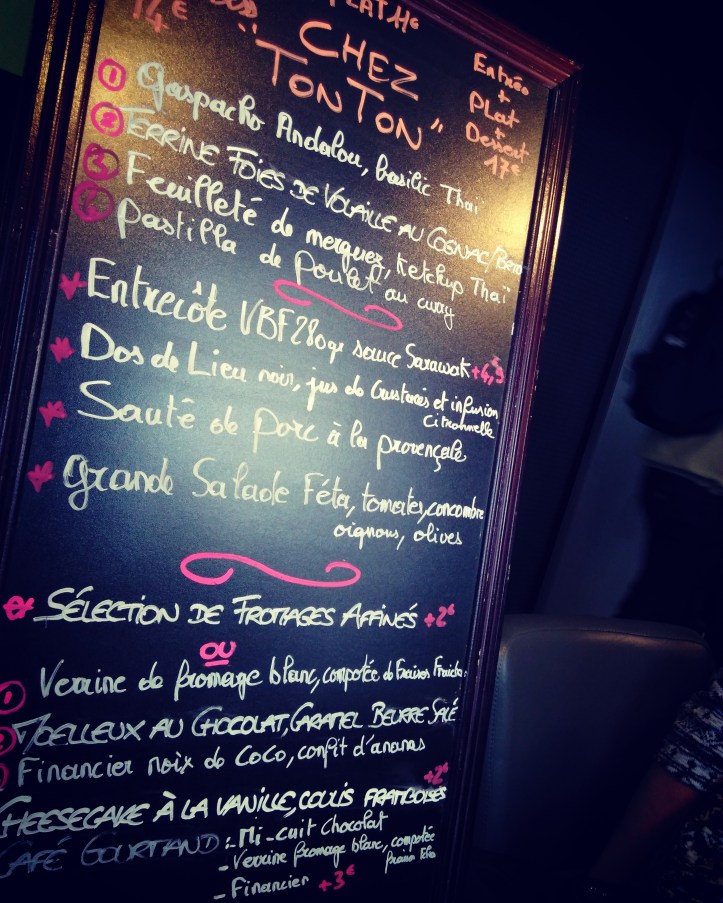 PLAT 11€
14€
CHEZ
"TONTON"
Entrée
+
PLat
+
Dessert
17€
1 Gaspacho Andalou, basilic Thaï
2 TERRINE FOIES DE VOLAILLE AU COGNAC/
3 Feuilleté de merguez, Ketchup Thaï
4 Pastilla de Poulet au curry
Entrecôte VBF 280gr sauce Sarawak +4,9
Dos de Lieu noir, jus de Crustacés et infusion
Citronnelle
Sauté de Porc à la provençale
Grande Salade Féta, tomates, concombre
oignons, olives
SÉLECTION DE FROMAGES AFFINÉS +2€
OU
1 Verrine de fromage blanc, compotée de Fraises Fraiches
2 MOELLEUX AU CHOCOLAT, CARAMEL BEURRE SALÉ
3 Financier noix de CoCo, confit d'ananas
CHEESECAKE À LA VANILLE, COULIS FRAMBOISES +2€
CAFÉ GOURMAND : - Mi-cuit Chocolat
- Verrine fromage blanc, compotée
- Financier +3€